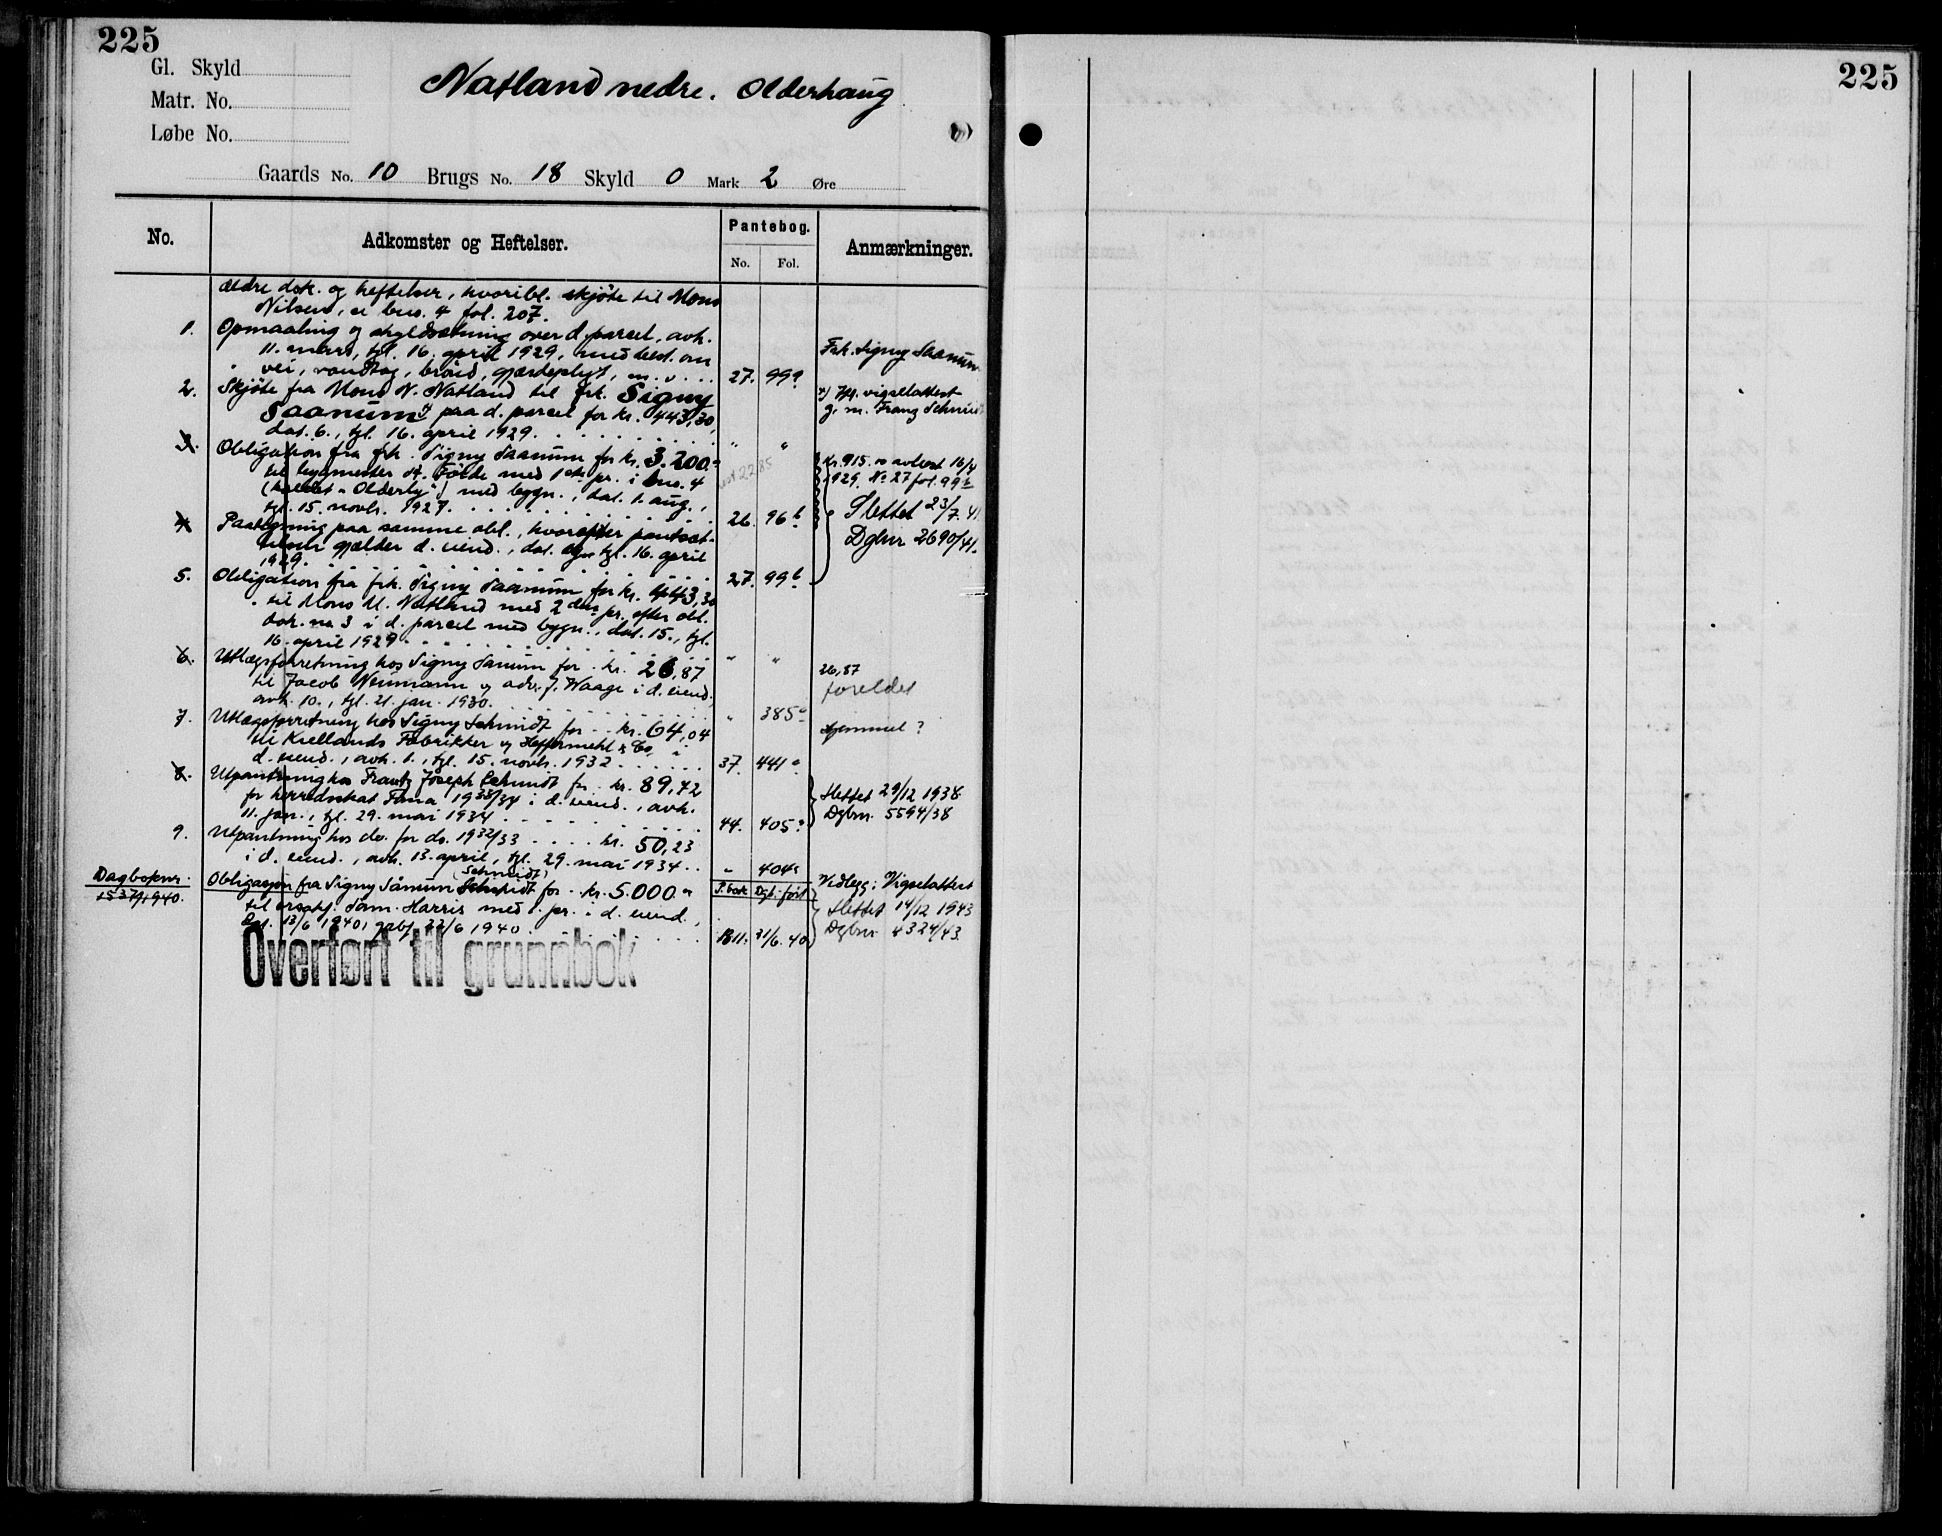 225
Gl. Skyld
Matr. No.
Løbe No.
Natland nedre. Olderhaug
Gaards No. 10 Brugs No. 18 Skyld 0 Mark 2 Øre
No.
Adkomster og Heftelser.
Pantebog.
No. Fol.
Anmærkninger.
Ældre dok. og heftelser, hvoribl. skjøte til Mons
Nilsen, se brus. 4 fol. 207.
1. Opmaaling og skyldsætning over d. parcel, avh.
11. mars, tgl. 16. april 1929, med best. om
vei, vandtag, gjærdeplygt, m. v. . . 27. 99a
Frk. Signy Saanum
2. Skjøte fra Mons N. Natland til frk. Signy
Saanum x) paa d. parcel for kr. 443,30,
dat. 6., tgl. 16. april 1929. " "
x) Jfr. vigselattest
g. m. Franz Schmidt
3. Obligation fra frk. Signy Saanum for kr. 3.200.-
til bygmester Følde med 1ste pr. i brus. 4
(kaldet "Olderly") med bygn., dat. 1. aug.,
tgl. 15. novbr. 1927. 26. 96b
Kr. 915.00 avlest 16/4
1929. No 27 fol. 99b
Slettet 23/7. 41
Dgbnr 2690/41.
4. Paategning paa samme obl., hvorefter pantsæt-
telsen gjælder d. eiend., dat. og tgl. 16. april
1929. 27. 99b
5. Obligation fra frk. Signy Saanum for kr. 443,30
til Mons N. Natland med 2den pr. efter obl.
dok. no. 3 i d. parcel med bygn., dat. 15., tgl.
16. april 1929. " "
6. Utlægsforretning hos Signy Sanum for kr. 26,87
til Jacob Neumann og adv. J. Waage i d. eiend.,
avh. 10., tgl. 21. jan. 1930. " 385a
26,87
foreldet
7. Utlægsforretning hos Signy Schmidt for kr. 64,04
til Kiellands Fabrikker og Heffermehl & Co, i
d. eiend., avh. 1., tgl. 15. novbr. 1932 37. 441a
hjemmel?
8. Utpantning hos Frantz Joseph Schmidt for kr. 89,42
for herredsskat Fana 1933/34 i d. eiend., avh.
11. jan., tgl. 29. mai 1934 44. 405a
Slettet 29/12 1938
Dgbnr. 5594/38
9. Utpantning hos do. for do. 1932/33 kr. 50,23
i d. eiend., avh. 13. april, tgl. 29. mai 1934 " 404a
Dagboknr.
1537/1940.
(Schmidt)
Obligasjon fra Signy Sånum Schmidt for kr. 5.000.-
P. bok Dgb. ført
til Sam. Harris med 1. pr. i d. eiend.,
Dat. 13/6 1940, 22/6 1940 B11. 21/6. 40
Vedlegg: Vigselattest
Slettet 14/12 1943
Dgbnr. 4324/43.
Overført til grunnbok
225